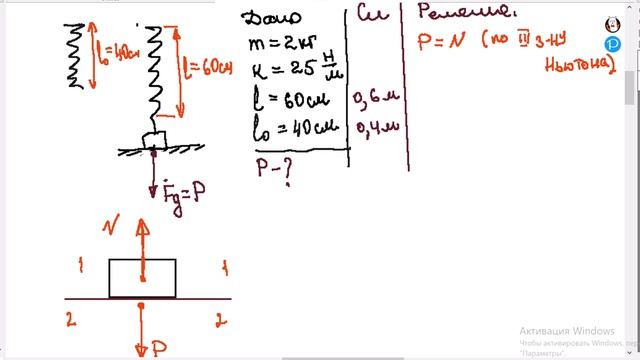 l₀=40см
l=60см
Fд=P
N
1
1
2
2
P
Дано
m=2кг
к=25 Н/м
l=60см
l₀=40см
P-?
Си
0,6м
0,4м
Решение.
P=N (по III з-ну
Ньютона)
Активация Windows
Чтобы активировать Windows, пер
"Параметры".